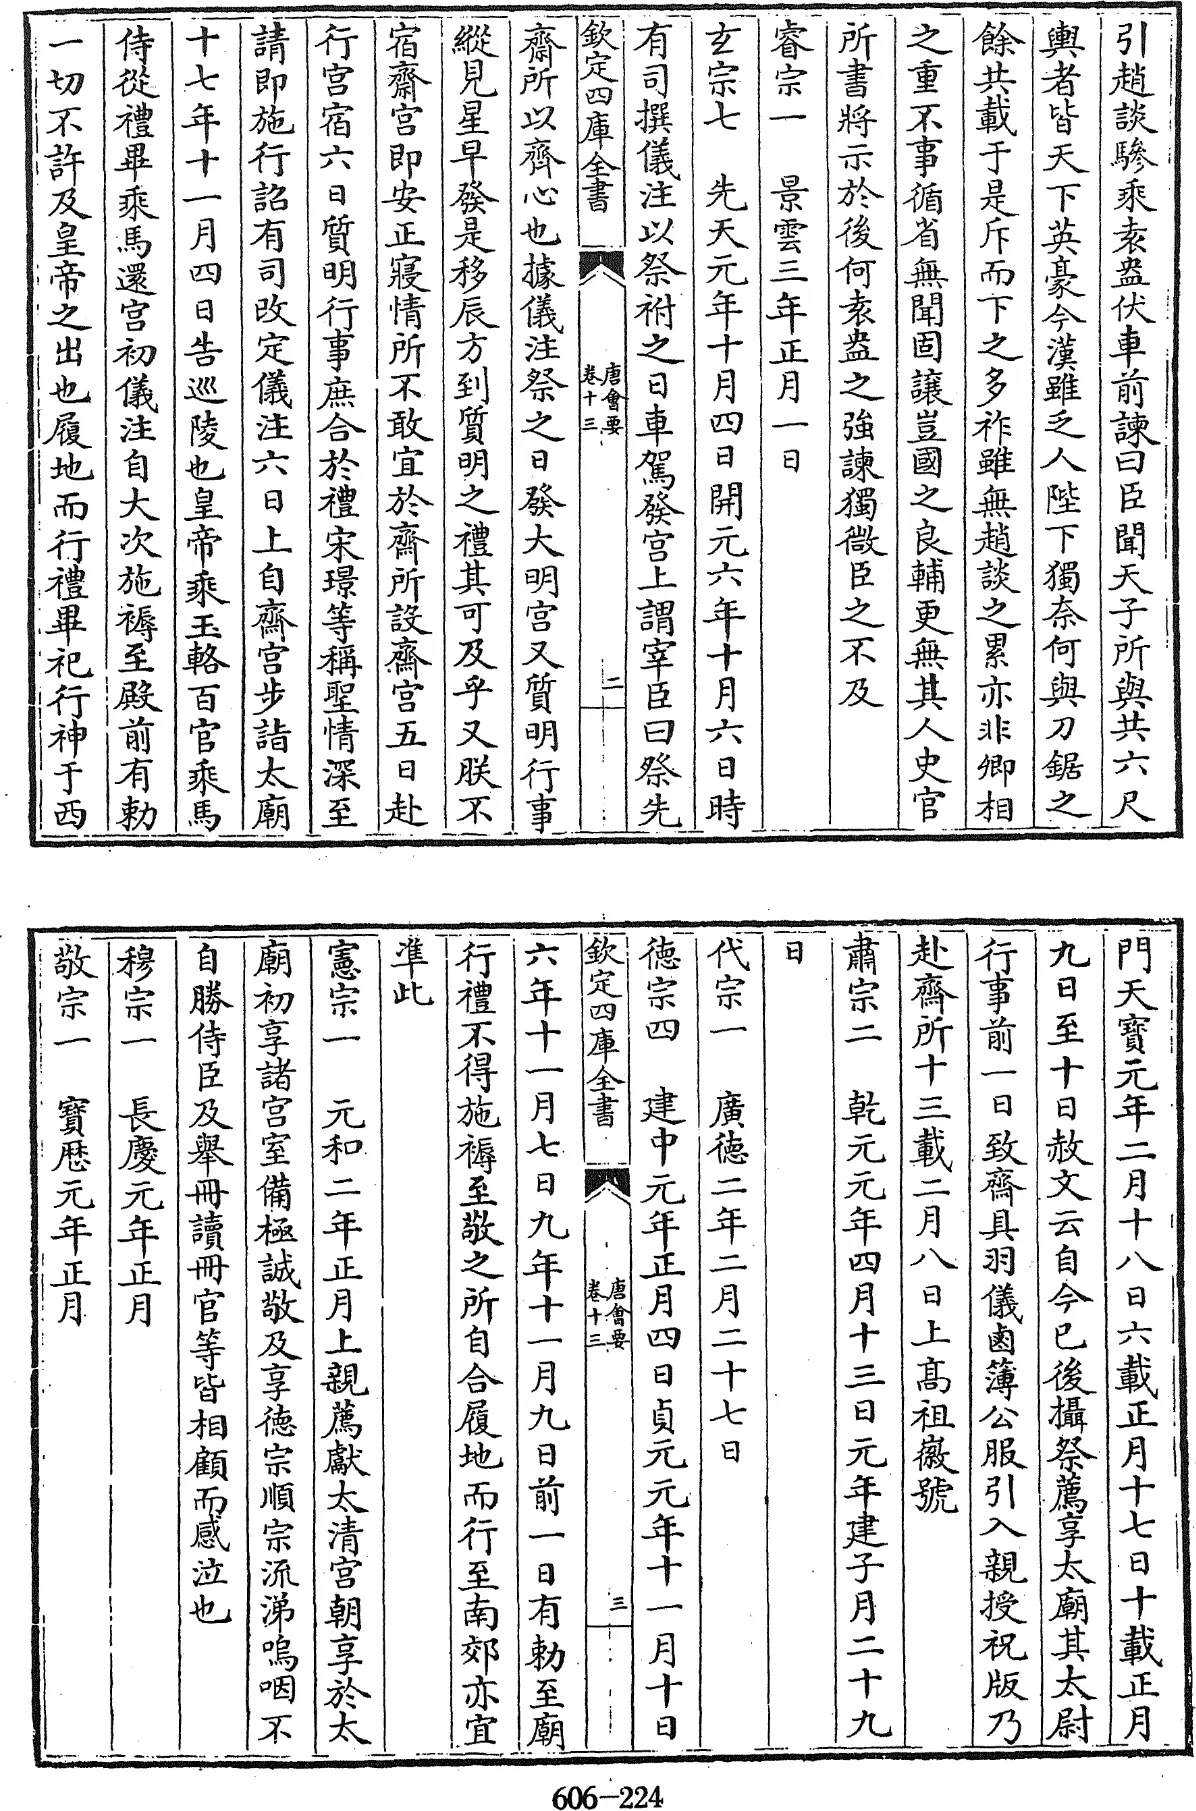 引趙談驂乘袁盎伏車前諫曰臣聞天子所與共六尺
輿者皆天下英豪今漢雖乏人陛下獨奈何與刀鋸之
餘共載于是斥而下之多祚雖無趙談之累亦非卿相
之重不事循省無聞固讓豈國之良輔更無其人史官
所書將示於後何袁盎之強諫獨微臣之不及
睿宗一　景雲三年正月一日
玄宗七　先天元年十月四日開元六年十月六日時
有司撰儀注以祭祔之日車駕發宮上謂宰臣曰祭先
欽定四庫全書
唐會要
卷十三
二
齋所以齊心也據儀注祭之日發大明宮又質明行事
縱見星早發是移辰方到質明之禮其可及乎又朕不
宿齋宮即安正寢情所不敢宜於齋所設齋宮五日赴
行宮宿六日質明行事庶合於禮宋璟等稱聖情深至
請即施行詔有司改定儀注六日上自齋宮步詣太廟
十七年十一月四日告巡陵也皇帝乘玉輅百官乘馬
侍從禮畢乘馬還宮初儀注自大次施褥至殿前有勅
一切不許及皇帝之出也履地而行禮畢祀行神于西
門天寶元年二月十八日六載正月十七日十載正月
九日至十日赦文云自今已後攝祭薦享太廟其太尉
行事前一日致齋具羽儀鹵簿公服引入親授祝版乃
赴齋所十三載二月八日上高祖徽號
肅宗二　乾元元年四月十三日元年建子月二十九
日
代宗一　廣德二年二月二十七日
德宗四　建中元年正月四日貞元元年十一月十日
欽定四庫全書
唐會要
卷十三
三
六年十一月七日九年十一月九日前一日有勅至廟
行禮不得施褥至敬之所自合履地而行至南郊亦宜
準此
憲宗一　元和二年正月上親薦獻太清宮朝享於太
廟初享諸宮室備極誠敬及享德宗順宗流涕嗚咽不
自勝侍臣及舉冊讀冊官等皆相顧而感泣也
穆宗一　長慶元年正月
敬宗一　寶歷元年正月
606-224